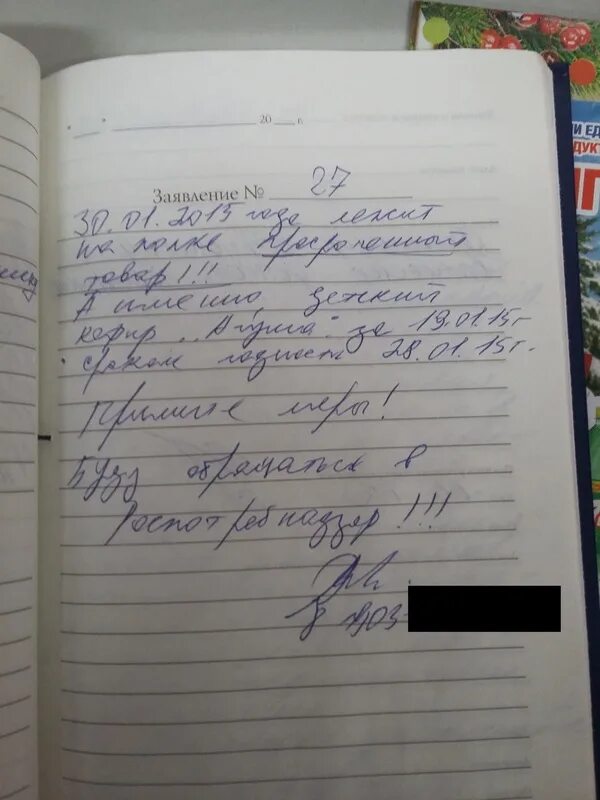 " " 20 г.
Заявление № 27
30.01.2015 года лежит
на полке просроченный
товар!!!
А именно, детский
кефир "Агуша" за 19.01.15г
сроком годности 28.01.15г.
Примите меры!
Буду обращаться в
Роспотребнадзор!!!
8 903-